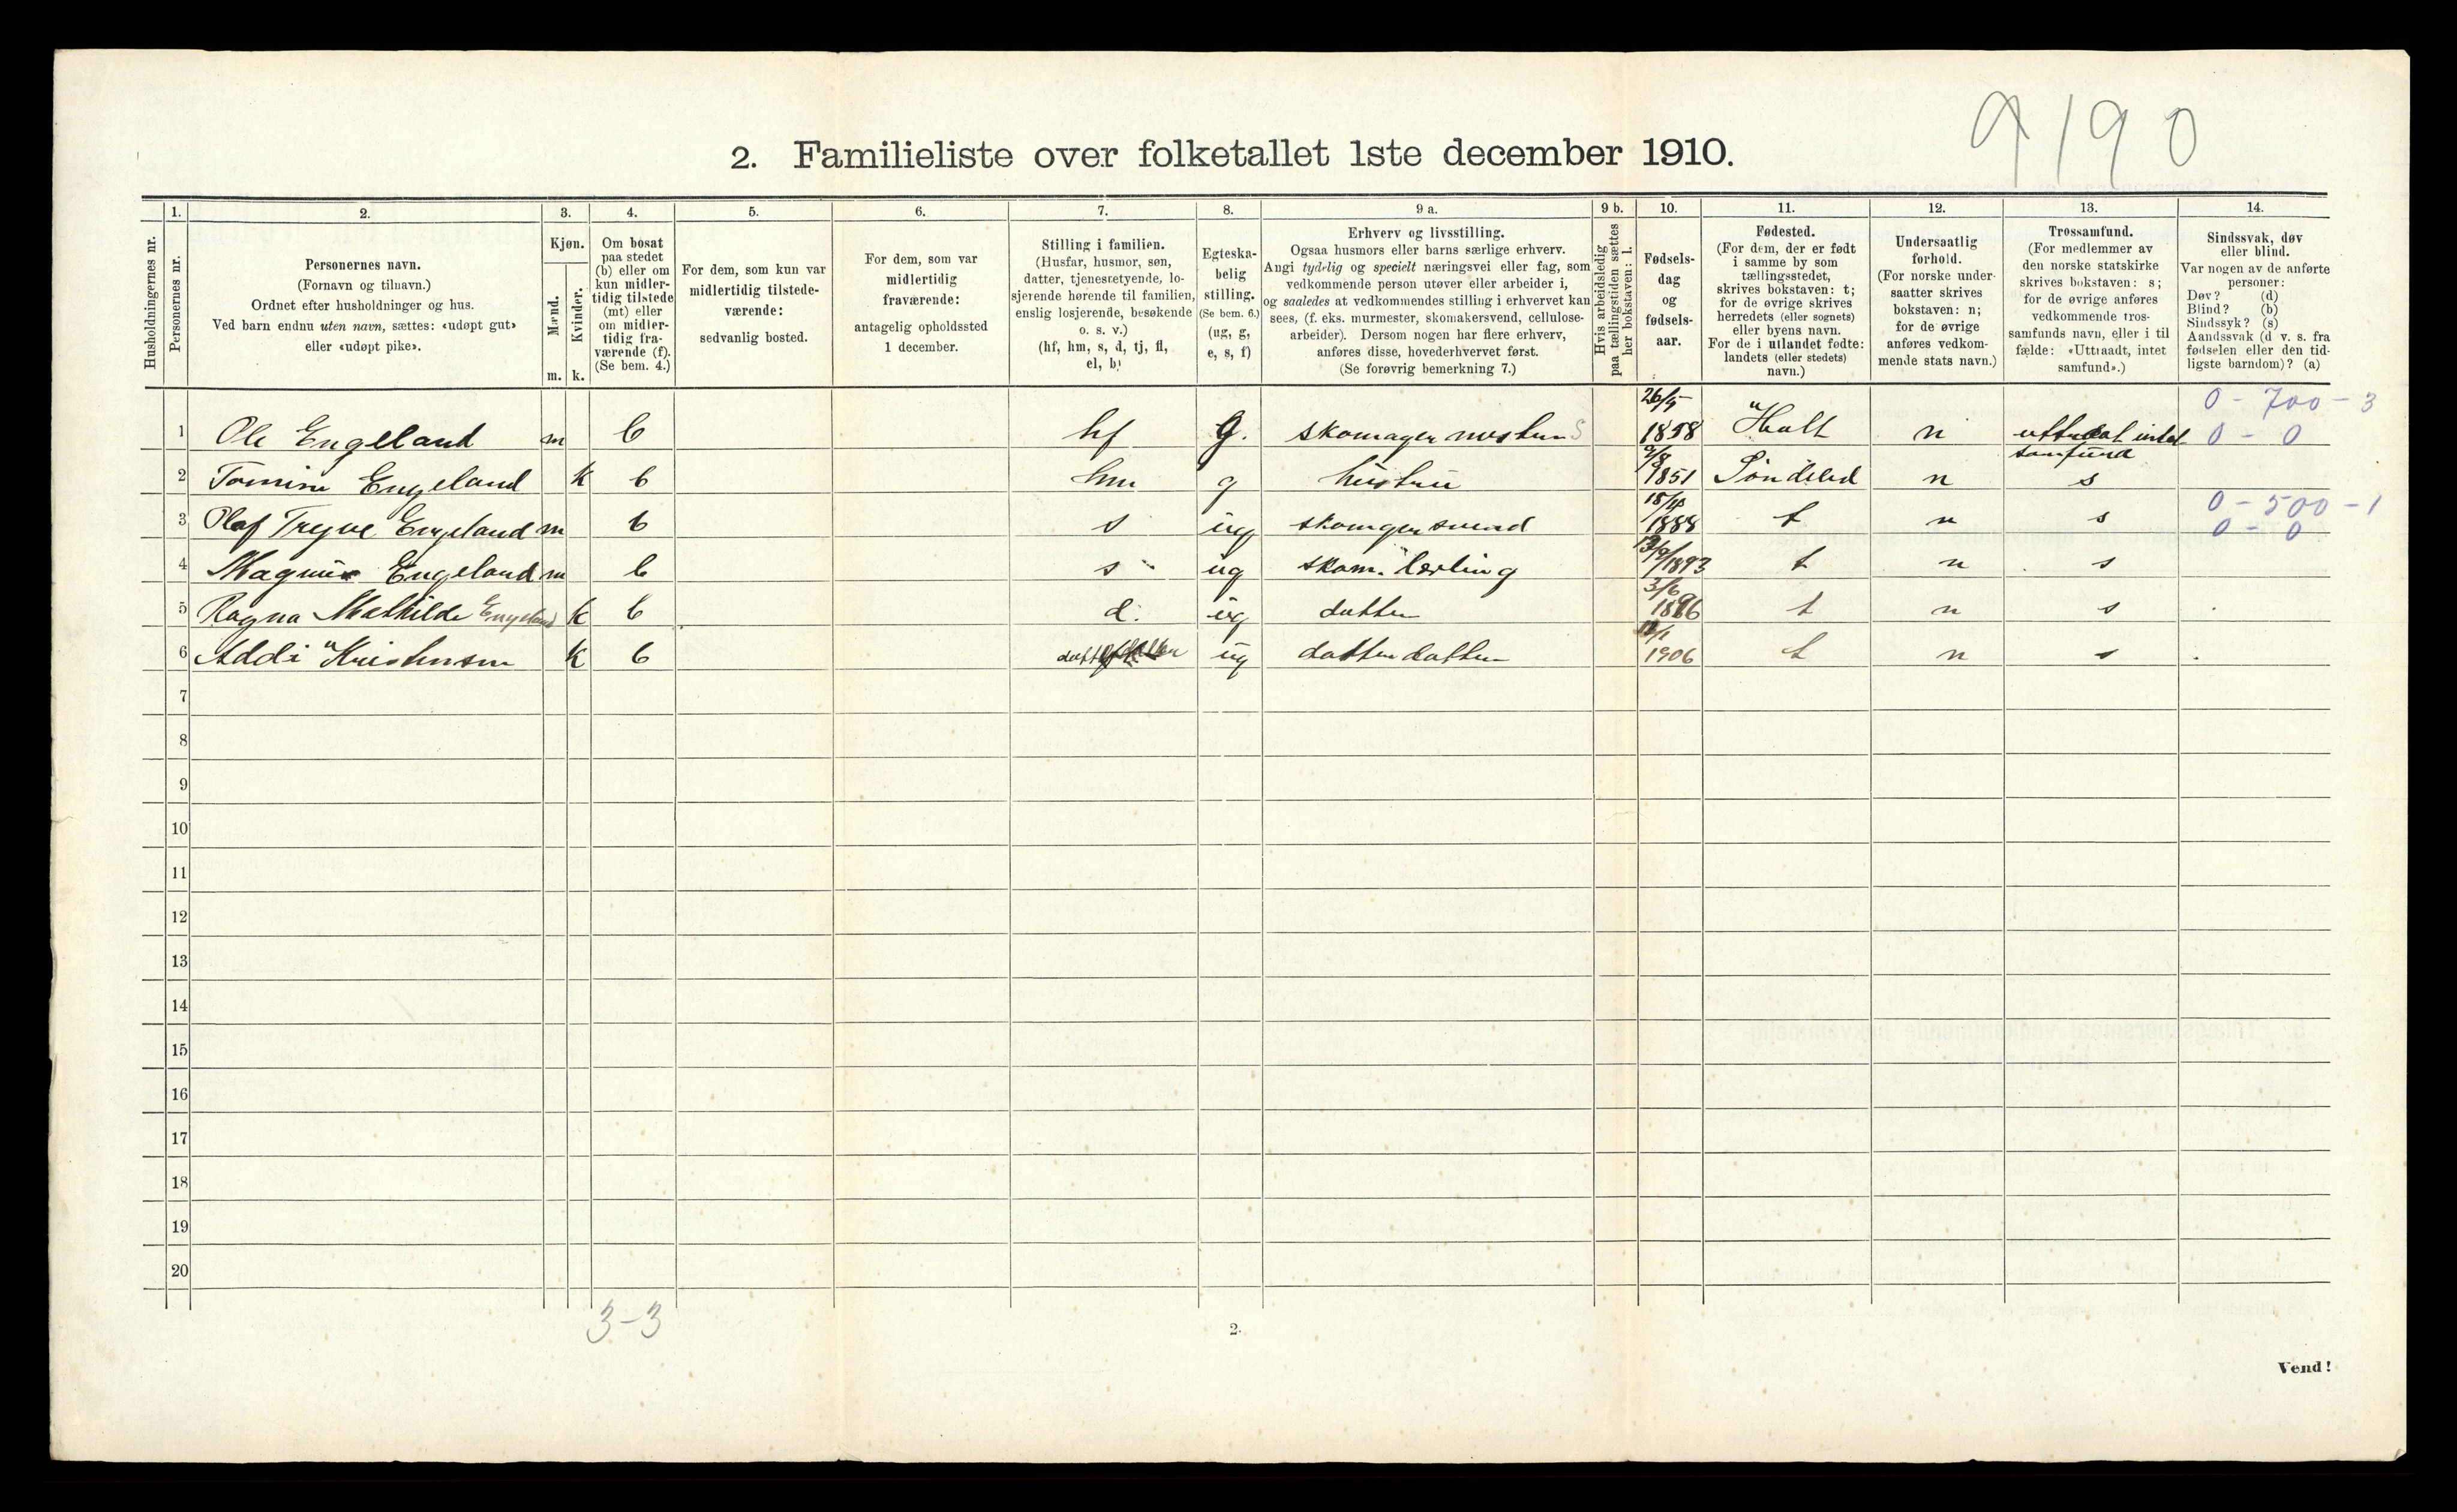 9190
2. Familieliste over folketallet 1ste december 1910.
Husholdningernes nr.
1.
Personernes nr.
2.
Personernes navn.
(Fornavn og tilnavn.)
Ordnet efter husholdninger og hus.
Ved barn endnu uten navn, sættes: «udøpt gut»
eller «udøpt pike».
3.
Kjøn.
Mænd.
Kvinder.
m. k.
4.
Om bosat
paa stedet
(b) eller om
kun midler-
tidig tilstede
(mt) eller
om midler-
tidig fra-
værende (f).
(Se bem. 4.)
5.
For dem, som kun var
midlertidig tilstede-
værende:
sedvanlig bosted.
6.
For dem, som var
midlertidig
fraværende:
antagelig opholdssted
1 december.
7.
Stilling i familien.
(Husfar, husmor, søn,
datter, tjenestetyende, lo-
sjerende hørende til familien,
enslig losjerende, besøkende
o. s. v.)
(hf, hm, s, d, tj, fl,
el, b)
8.
Egteska-
belig
stilling.
(Se bem. 6.)
(ug, g,
e, s, f)
9 a.
Erhverv og livsstilling.
Ogsaa husmors eller barns særlige erhverv.
Angi tydelig og specielt næringsvei eller fag, som
vedkommende person utøver eller arbeider i,
og saaledes at vedkommendes stilling i erhvervet kan
sees, (f. eks. murmester, skomakersvend, cellulose-
arbeider). Dersom nogen har flere erhverv,
anføres disse, hovederhvervet først.
(Se forøvrig bemerkning 7.)
9 b.
Hvis arbeidsledig
paa tællingstiden sættes
her bokstaven: l.
10.
Fødsels-
dag
og
fødsels-
aar.
11.
Fødested.
(For dem, der er født
i samme by som
tællingsstedet,
skrives bokstaven: t;
for de øvrige skrives
herredets (eller sognets)
eller byens navn.
For de i utlandet fødte:
landets (eller stedets)
navn.)
12.
Undersaatlig
forhold.
(For norske under-
saatter skrives
bokstaven: n;
for de øvrige
anføres vedkom-
mende stats navn.)
13.
Trossamfund.
(For medlemmer av
den norske statskirke
skrives bokstaven: s;
for de øvrige anføres
vedkommende tros-
samfunds navn, eller i til
fælde: «Uttraadt, intet
samfund».)
14.
Sindssvak, døv
eller blind.
Var nogen av de anførte
personer:
Døv? (d)
Blind? (b)
Sindssyk? (s)
Aandssvak (d. v. s. fra
fødselen eller den tid-
ligste barndom)? (a)
1 Ole Engeland m b hf g. skomager mester S 26/5 1858 Holt n uttraat intet samfund 0 - 700 - 3 0 - 0
2 Tomine Engeland k b hm g hustru 1851 Søndeled n s
3 Olaf Tryve Engeland m b s ug skomager svend 1888 t n s 0 - 500 - 1 0 - 0
4 Magnus Engeland m b s ug skom. lærling 1893 t n s
5 Ragna Mathilde Engeland k b d. ug datter 3/6 1896 t n s
6 Addi Kristensen k b ug datter datter 1906 t n s
7
8
9
10
11
12
13
14
15
16
17
18
19
20
3-3
2.
Vend!